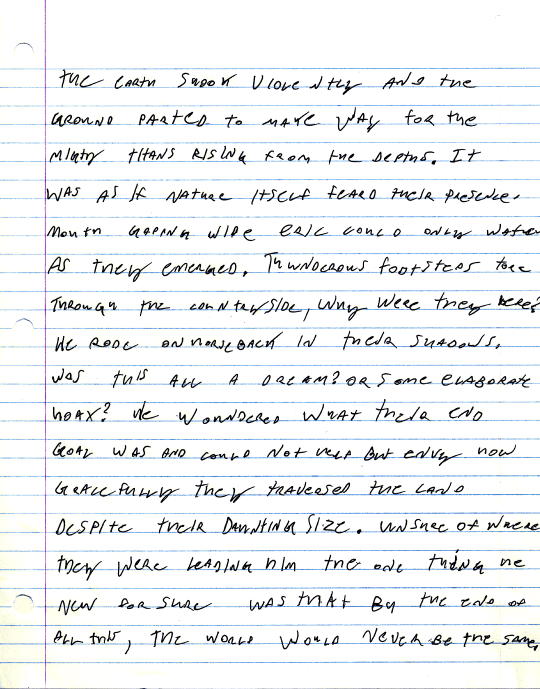 The earth shook violently and the
ground parted to make way for the
mighty titans rising from the depths. It
was as if nature itself feard their presence.
Mouth gaping wide Eric could only watch
as they emerged. Thunderous footsteps tore
through the countryside, why were they here?
He rode on horseback in their shadows.
Was this all a dream? Or some elaborate
hoax? He wonndered what their end
goal was and could not help but envy how
gracefully they traversed the land
despite their daunting size. Unsure of where
they were leading him the one thing he
new for sure was that by the end of
all this, the world would never be the same.